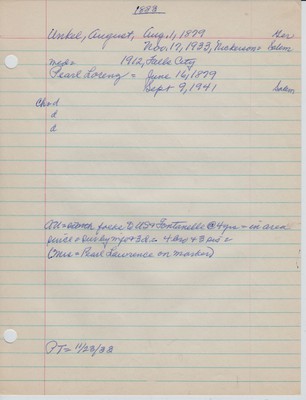 1883
Unkel, August, Aug. 1, 1879 Ger
Nov. 17, 1933, Nickerson = Salem
md = 1912, Falls City
Pearl Lorenz = June 16, 1879
Sept 9, 1941 Salem
ch = d
d
d
Od = folks to US + Fontanelle @ 4 yrs = in area
since = surv by wf + 3 ds 4 bro + 3 sis =
(Mrs = Pearl Lawrence on marker)
PT = 11/23/33